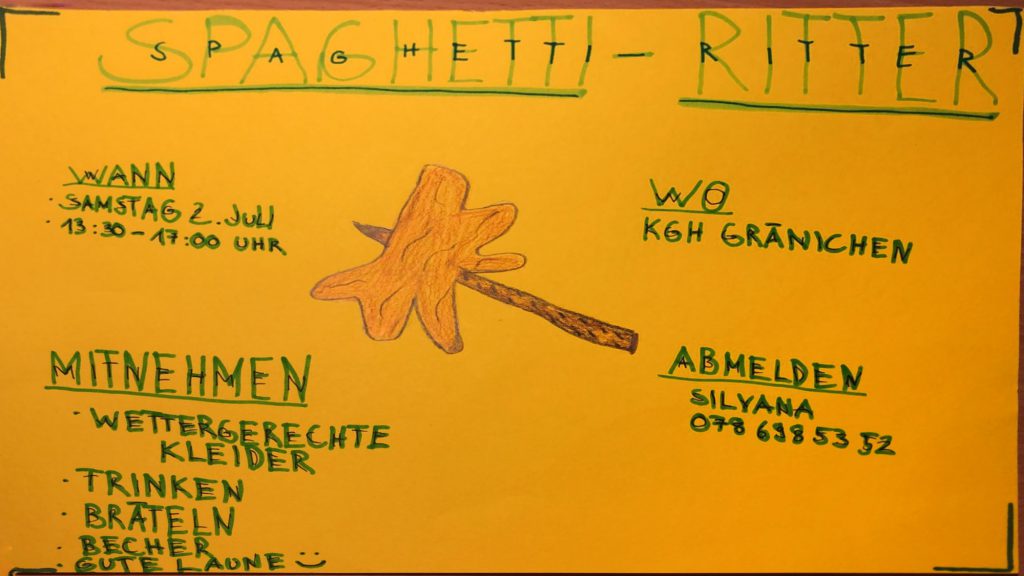 SPAGHETTI - RITTER
WANN
· SAMSTAG 2. JULI
· 13:30 - 17:00 UHR
WO
KGH GRÄNICHEN
MITNEHMEN
· WETTERGERECHTE
KLEIDER
· TRINKEN
· BRÄTELN
· BECHER
· GUTE LAUNE :)
ABMELDEN
SILVANA
078 698 53 52